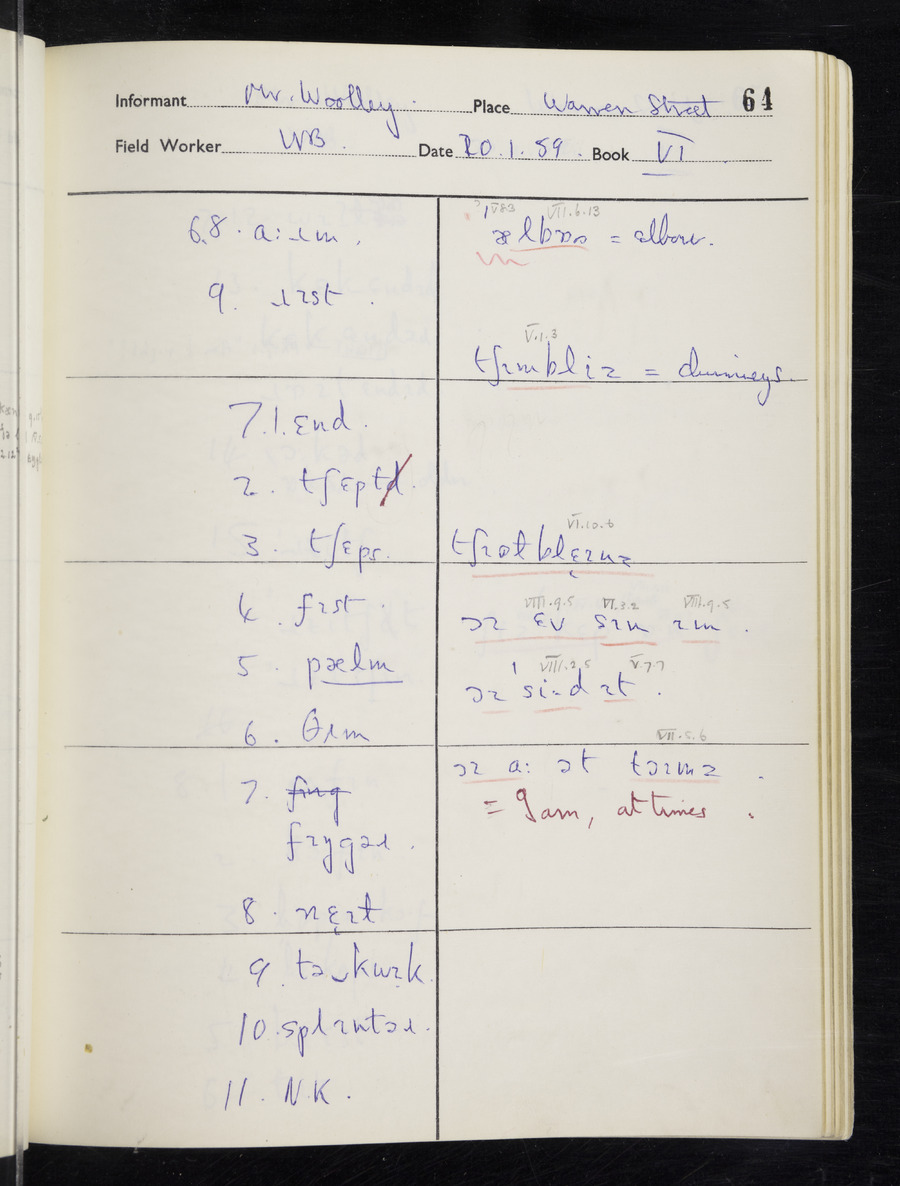 Informant Mr. Woolley. Place Warren Street 64
Field Worker WB. Date 20.1.59. Book VI
6.8. ɑ:ɹm.
9. ɹɪst.
7.1. ɛnd.
2. tʃɛpt
3. tʃɛps.
4. fɪst.
5. pælm
6. θɹm
7. fɪŋg
fɪŋgəɹ.
8. nɛ̞ɪt
9. tə‿kwɪk.
10. splɪntəɹ.
11. N.K.
V83 VII.6.13
= elbow.
V.1.3
tʃɪmblɪz = chimneys.
VI.10.6
tʃɪɒlblɛ̞ɪnz
VIII.9.5 VI.3.2 VIII.9.5
ɔɪ ɛv sɪn ɪm.
VIII.2.5 V.7.7
ɔɪ si:d ɪt.
VII.5.6
ɔɪ ɑ: ət tɔɪmz.
= I am, at times.